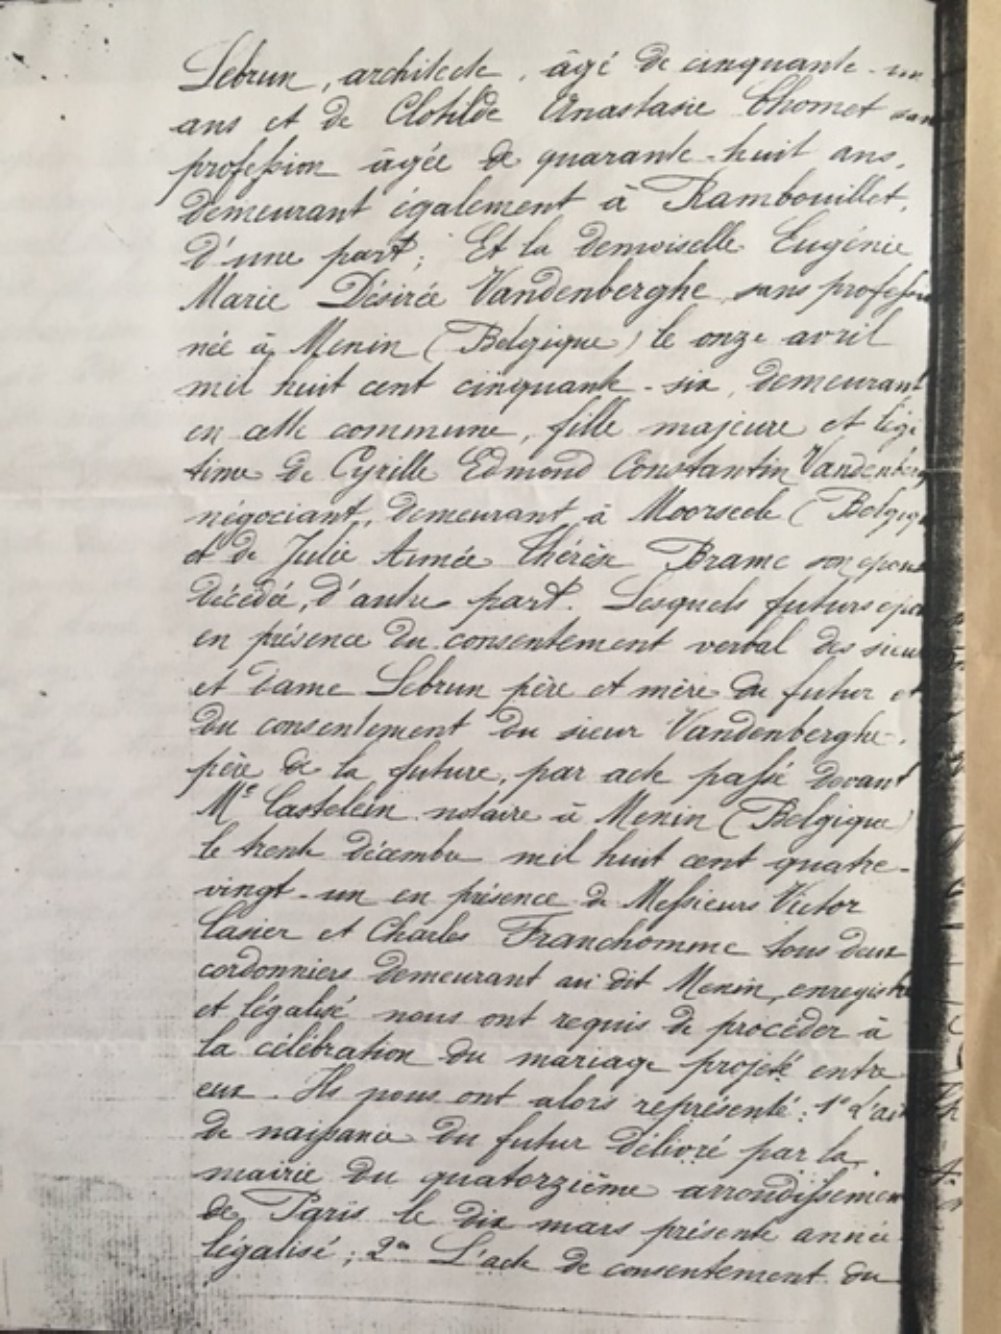 Lebrun, architecte, âgé de cinquante-un
ans et de Clotilde Anastasie Chomet sans
profession âgée de quarante-huit ans,
demeurant également à Rambouillet,
d'une part; Et la demoiselle Eugénie
Marie Désirée Vandenberghe sans profession
née à Menin (Belgique) le onze avril
mil huit cent cinquante-six, demeurant
en cette commune, fille majeure et légi
time de Cyrille Edmond Constantin Vandenberg
négociant, demeurant à Moorsede (Belgiqu
et de Julie Aimée Thérèse Brame son épous
décédée, d'autre part. Lesquels futurs épou
en présence du consentement verbal des sieur
et dame Lebrun père et mère du futur et
du consentement du sieur Vandenberghe,
père de la future, par acte passé devant
Me Castelein notaire à Menin (Belgique)
le trente décembre mil huit cent quatre-
vingt-un en présence de Messieurs Victor
Casier et Charles Franchomme tous deux
cordonniers demeurant au dit Menin, enregistré
et légalisé nous ont requis de procéder à
la célébration du mariage projeté entre
eux. Ils nous ont alors représenté: 1° L'ac
de naissance du futur délivré par la
mairie du quatorzième arrondissemen
de Paris le dix mars présente année
légalisé; 2° L'acte de consentement du